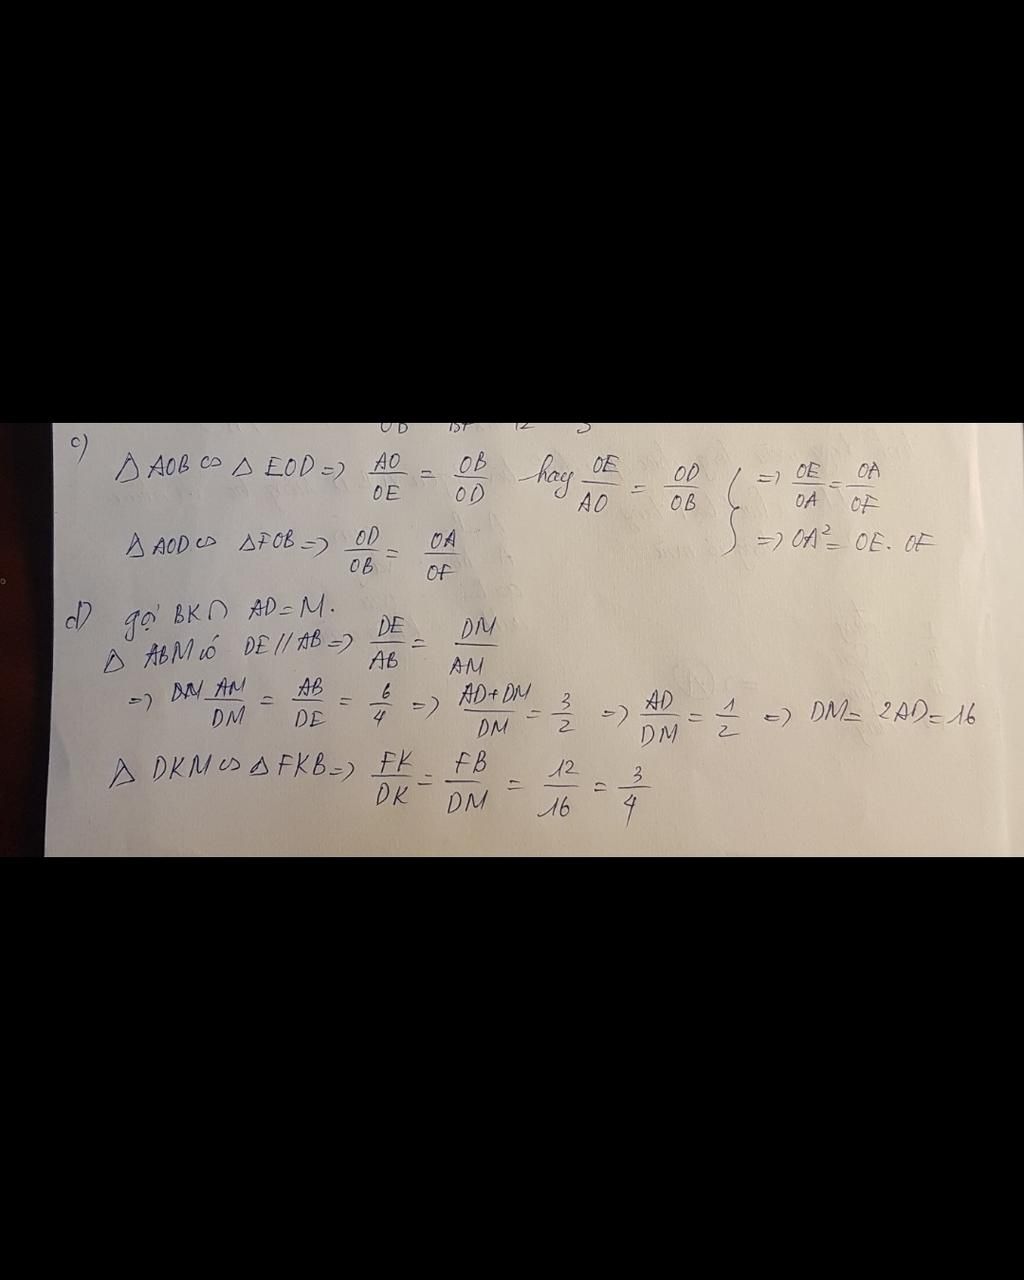 c)
Δ AOB ∽ Δ EOD => AO/OE = OB/OD hay OE/AO = OD/OB } => OE/OA = OA/OF
Δ AOD ∽ ΔFOB => OD/OB = OA/OF => OA² = OE. OF
d) gọi BK ∩ AD = M.
Δ ABM có DE // AB => DE/AB = DM/AM
=> AM/DM = AB/DE = 6/4 => AD+DM/DM = 3/2 => AD/DM = 1/2 => DM = 2AD = 16
Δ DKM ∽ Δ FKB => FK/DK = FB/DM = 12/16 = 3/4